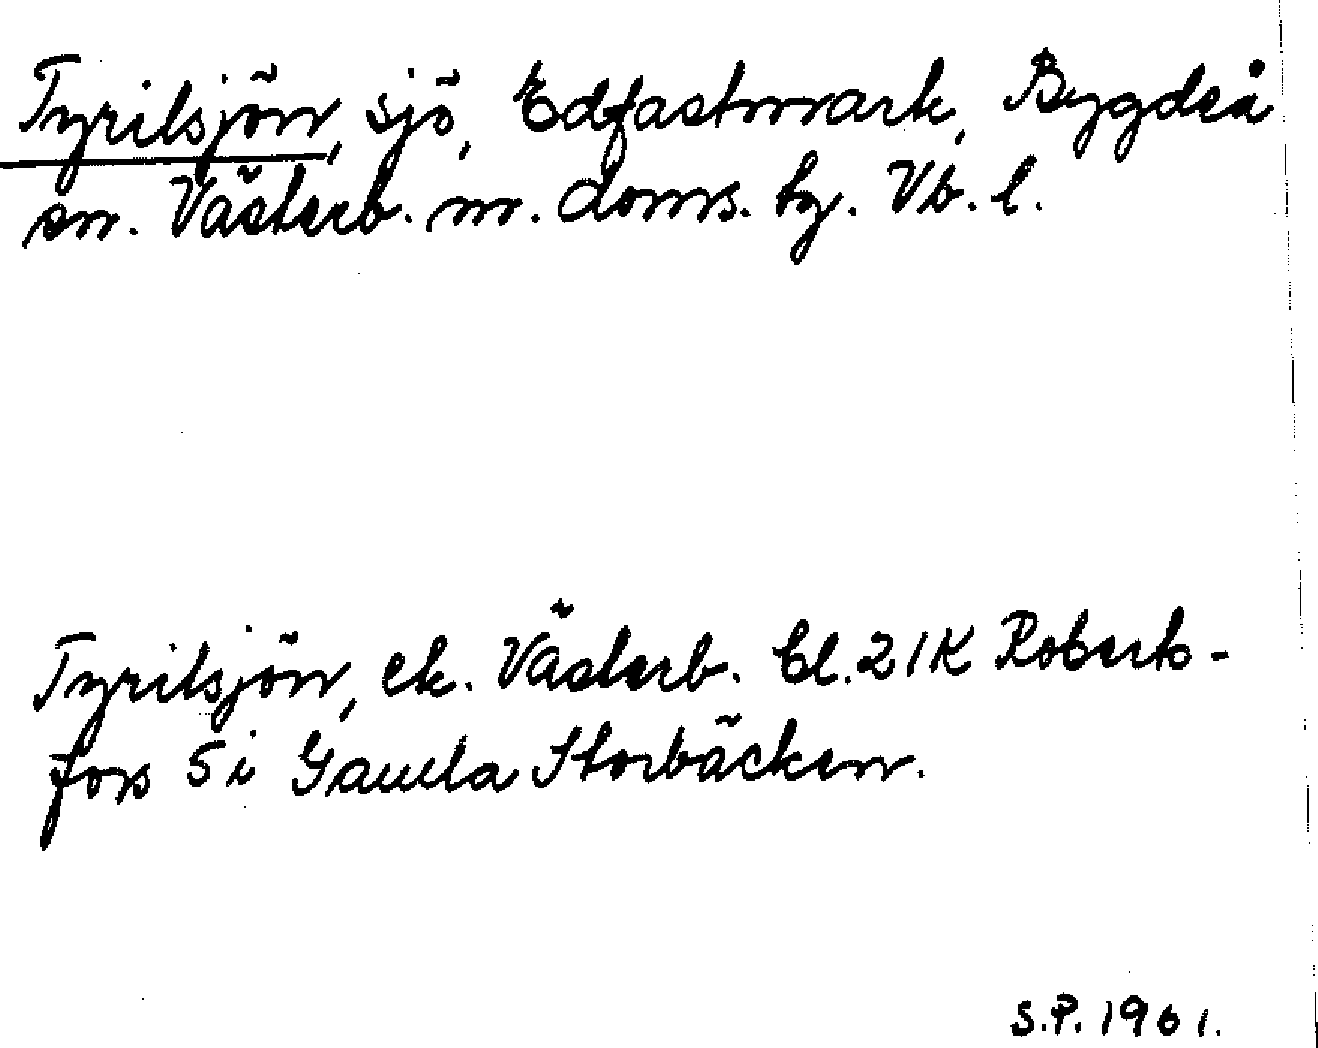 Tyrilsjön, sjö, Edfastmark, Bygdeå
sn. Västerb. m. doms. tg. Vb. l.
Tyrilsjön, ek. Västerb. bl. 21K Roberts-
fors 5 i Gamla Storbäcken.
S.P. 1961.